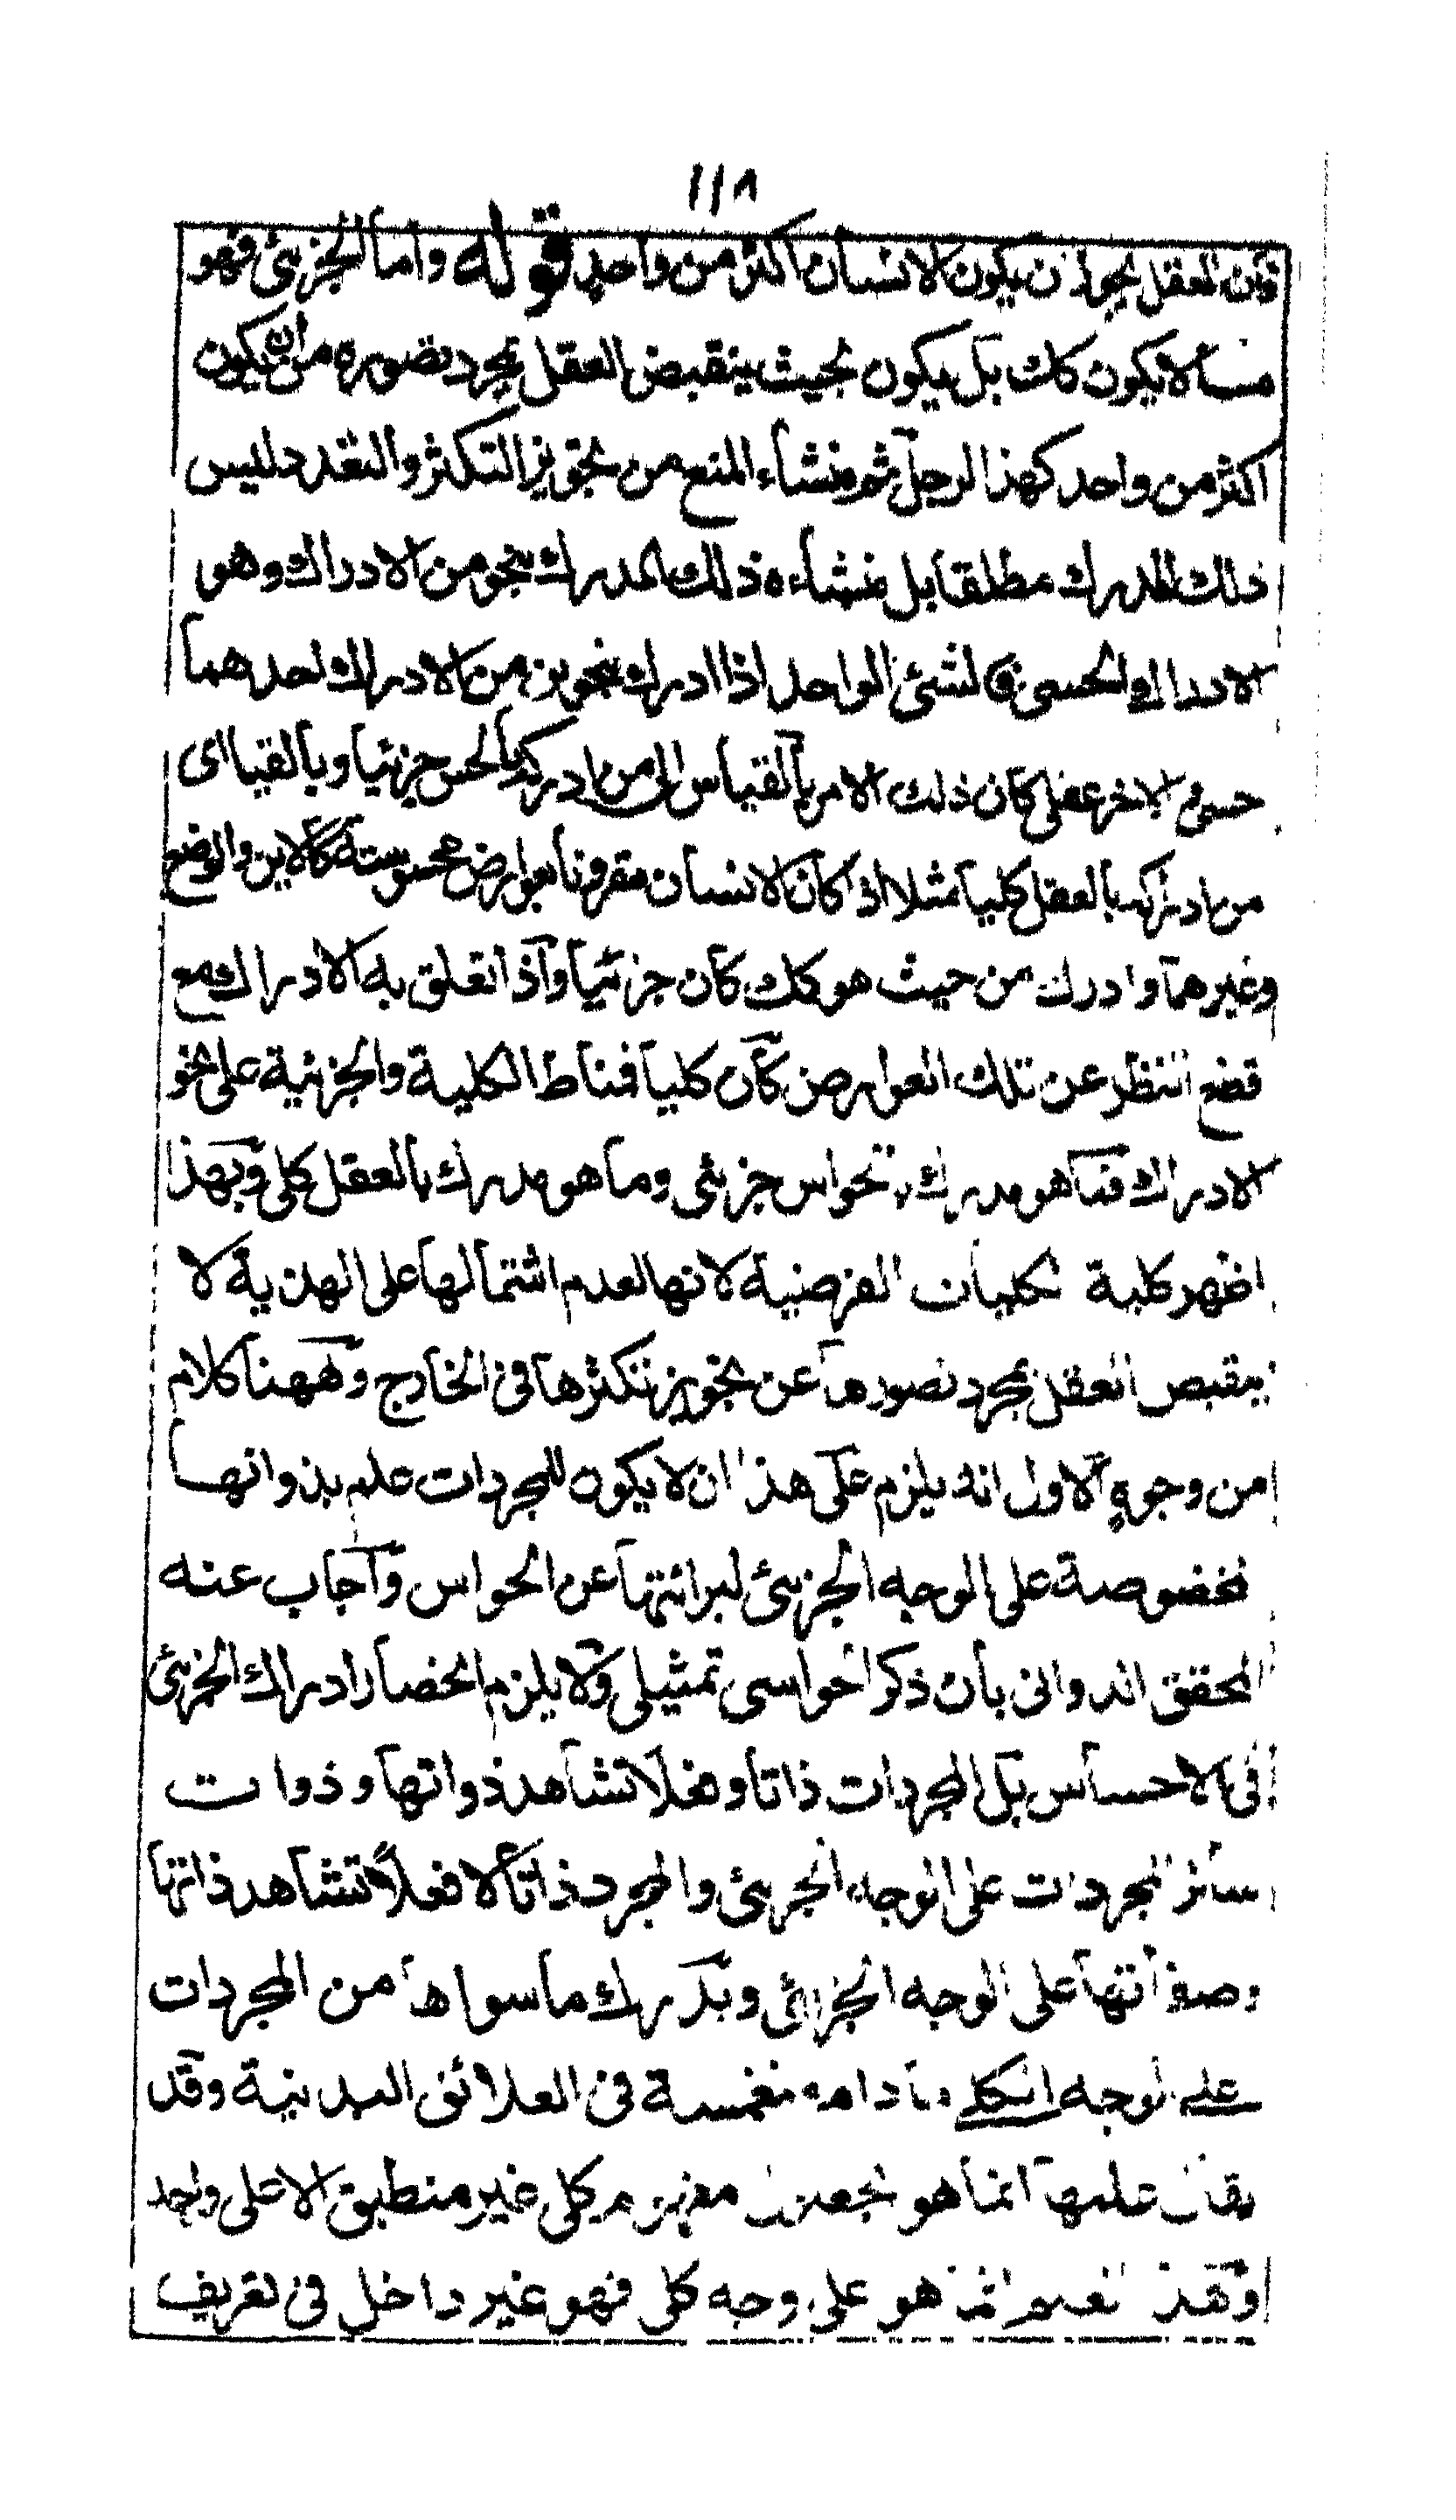 ١١٨
فان العقل يجوز ان يكون الانسان اكثر من واحد قوله واما الجزئي فهو
مسألا يكون كك بل يكون بحيث ينقبض العقل بمجرد تصوره من ان يكون
اكثر من واحد كهذا الرجل ثم منشاء المنع من تجويز التكثر والتعدد ليس
ذلك المدرك مطلقا بل منشاءه ذلك المدرك بنحو من الادراك وهو
الادراك الحسي فالشئ الواحد اذا ادرك بنحوين من الادراك احدهما
حسي والاخر عقلي كان ذلك الامر بالقياس الى من ادركه بالحس جزئيا وبالقيا اى
من ادركه بالعقل كليا مثلا اذا كان الانسان مقرونا بعوارض محسوسة كالاين والوضع
وغيرهما وادرك من حيث هو كك كان جزئيا واذا تعلق به الادراك مع
قطع النظر عن تلك العوارض كان كليا فمناط الكلية والجزئية على نحو
الادراك فما هو مدرك بالحواس جزئي وما هو مدرك بالعقل كلي وبهذا
اظهر كلية الكليات الفرضية لانها لعدم اشتمالها على الهذية لا
ينقبض العقل بمجرد تصورها عن تجويز تكثرها في الخارج وههنا كلام
من وجوه الاول انه يلزم على هذا ان لا يكون للمجردات علم بذواتها
بخصوصة على الوجه الجزئي لبرائتها عن الحواس واجاب عنه
المحقق الدواني بان ذكر الحواسي تمثيلي ولا يلزم انحصار ادراك الجزئي
في الاحساس بل المجردات ذاتا وفعلا تشاهد ذواتها وذوات
سائر المجردات على الوجه الجزئي والمجرد ذاتا لا فعلا تشاهد ذاتها
وصفاتها على الوجه الجزائي ويدرك ما سواها من المجردات
على الوجه الكلي ما دامه منغمسة في العلائق البدنية وقد
يقال علمها انما هو بجعل مفهوم كلي غير منطبق الا على واحد
وهذا العلم انما هو على وجه كلي فهو غير داخل في تعريف